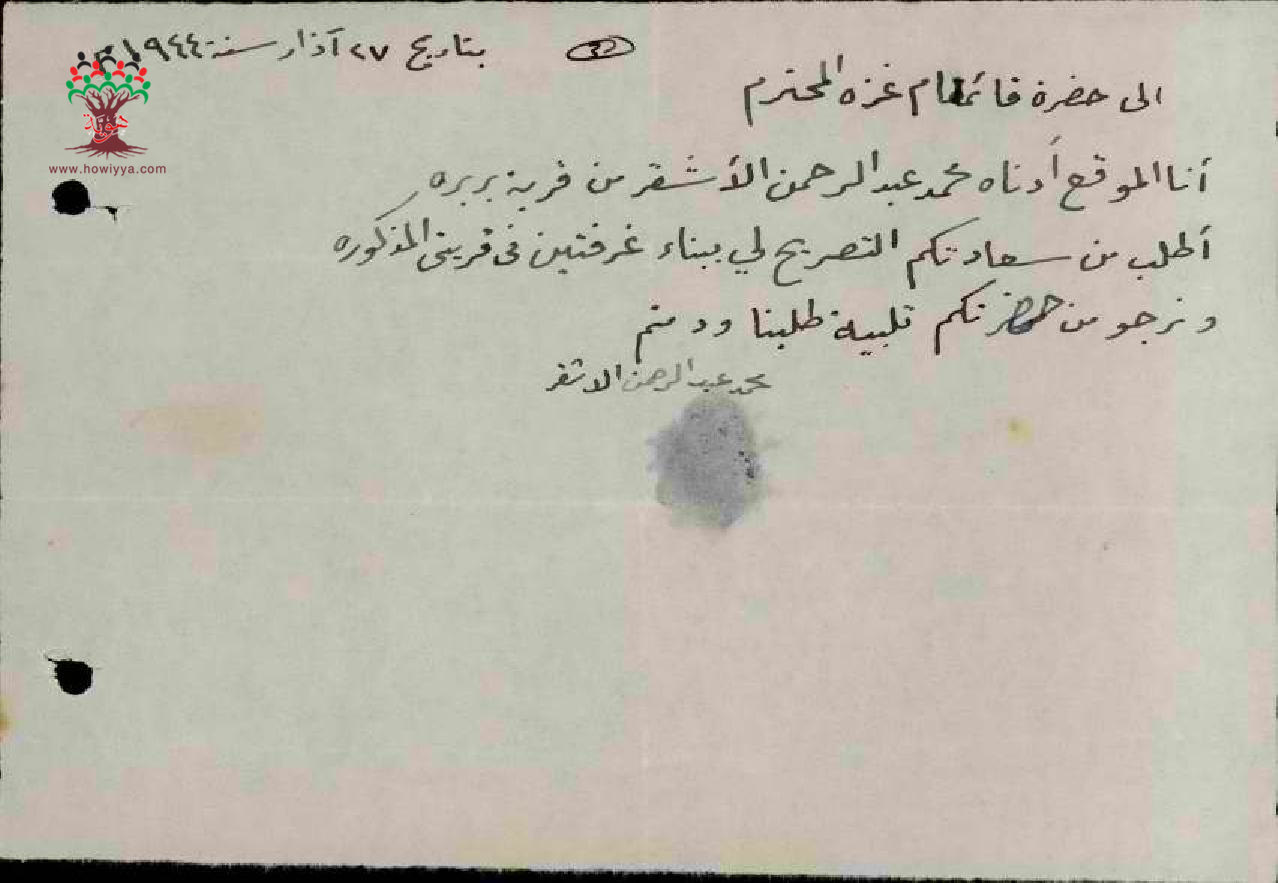 بتاريخ ٢٧ آذار سنة ١٩٤٤م
32
الى حضرة قائمقام غزه المحترم
أنا الموقع أدناه محمد عبد الرحمن الأشقر من قرية بربره
أطلب من سعادتكم التصريح لي ببناء غرفتين فى قريتى المذكوره
ونرجو من حضرتكم تلبية طلبنا ودمتم
محمد عبد الرحمن الاشقر
هوية
www.howiyya.com